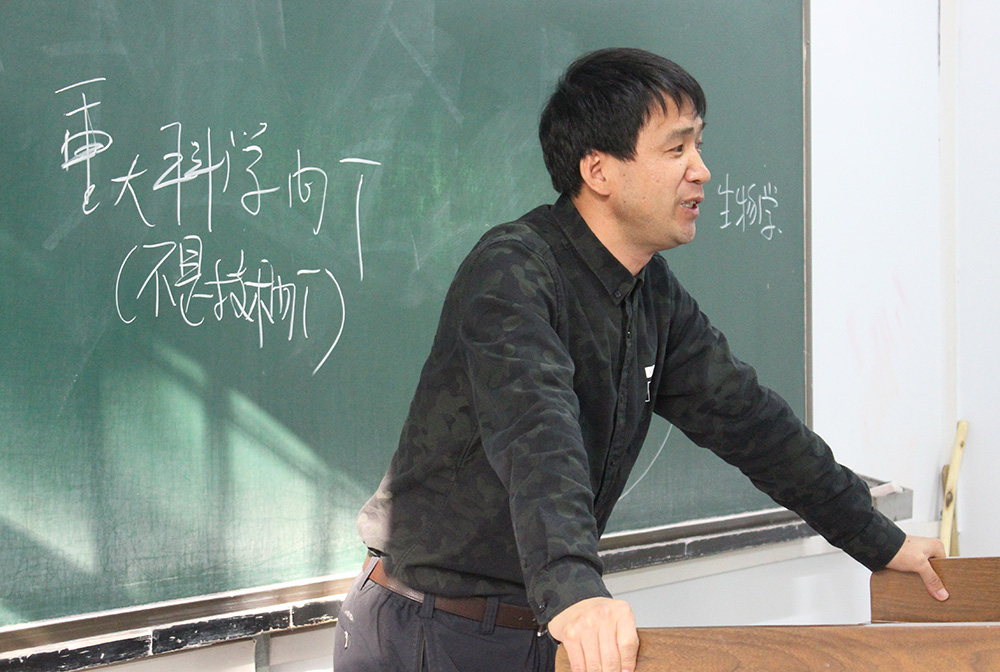 重大科学问T
(不是技术问T)
生物学